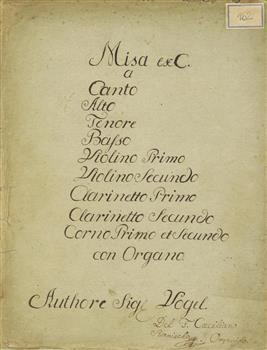 Misa ex C.
a
Canto
Alto
Tenore
Basso
Violino Primo
Violino Secundo
Clarinetto Primo
Clarinetto Secundo
Corno Primo et Secundo
con Organo
Authore Sigl Vogel.
Del F. Cæciliano